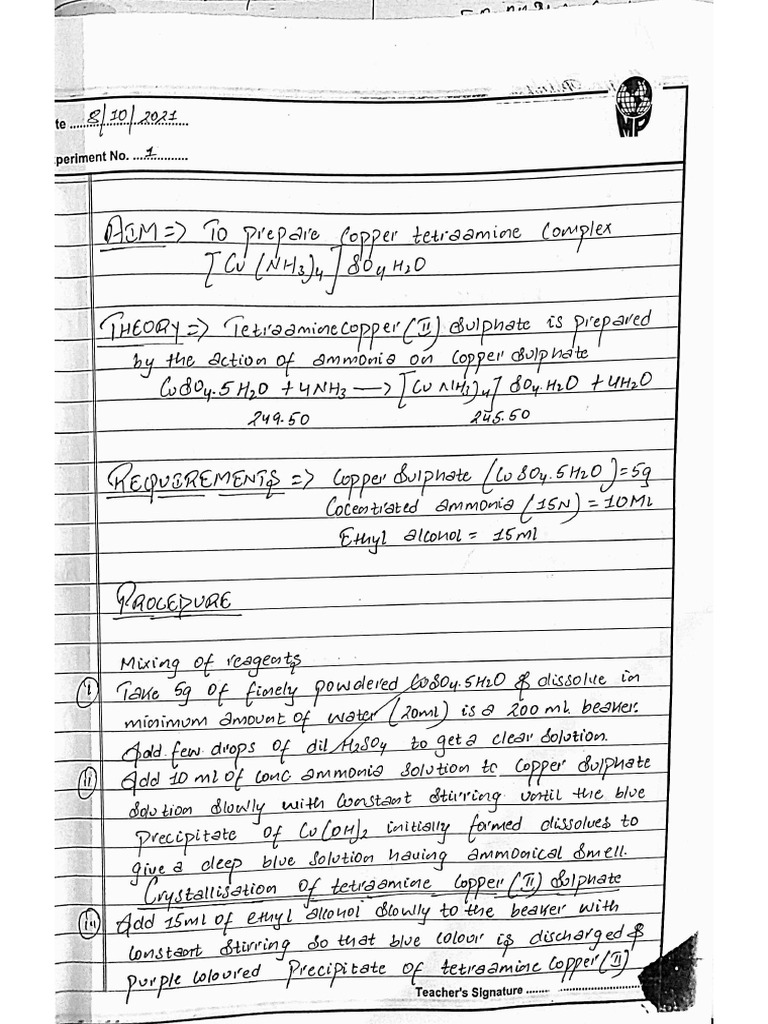 te ........8/10/2021........
periment No. ....1............
MP
AIM => To prepare copper tetraamine complex
[Cu(NH3)4]SO4H2O
THEORY => Tetraaminecopper(II) sulphate is prepared
by the action of ammonia on copper sulphate
CuSO4.5H2O + 4NH3 → [Cu NH3)4] SO4.H2O + 4H2O
249.50 245.50
REQUIREMENTS => Copper Sulphate (CuSO4.5H2O) = 5g
Cocentrated ammonia (15N) = 10Ml
Ethyl alcohol = 15ml
PROCEDURE
Mixing of reagents
(i) Take 5g of finely powdered CuSO4.5H2O & dissolve in
minimum amount of water (20ml) is a 200 ml beaker.
Add few drops of dil H2SO4 to get a clear solution.
(ii) Add 10 ml of conc ammonia solution to copper sulphate
solution slowly with constant stirring until the blue
precipitate of Cu(OH)2 initially formed dissolves to
give a deep blue solution having ammonical smell.
Crystallisation of tetraamine copper(II) sulphate
(iii) Add 15ml of ethyl alcohol slowly to the beaker with
constant stirring so that blue colour is discharged &
purple coloured precipitate of tetraamine copper(II)
Teacher's Signature ........ ........................